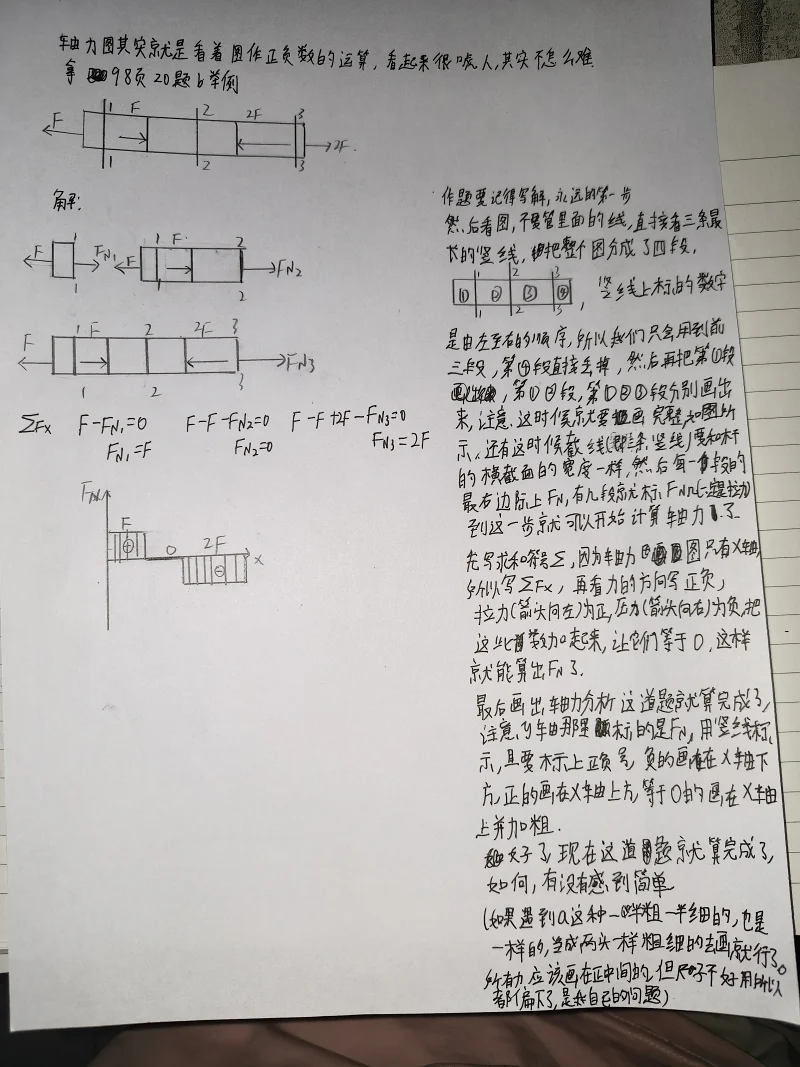 轴力图其实就是看着图作正负数的运算，看起来很唬人，其实不怎么难
拿98页20题b举例
F 1 F 2 2F 3
1 2 3 2F.
解：
F 1 FN1 F 1 F 2 FN2
1 1 2
F F 2 2F 3 FN3
1 2 3
ΣFx F-FN1=0 F-F-FN2=0 F-F+2F-FN3=0
FN1=F FN2=0 FN3=2F
FN
F 0 2F x
⊕ ⊖
作题要记得写解，永远的第一步
然后看图，不要管里面的线，直接看三条最
长的竖线，把整个图分成了四段，
① 1 ② 2 ③ 3 ④ ，竖线上标的数字
1 2 3
是由左至右的顺序，所以我们只会用到前
三段，第④段直接丢掉，然后再把第①段
，第①②段，第①②③段分别画出
来，注意，这时候就要画完整，如图所
示，还有这时候截线(那三条竖线)要和杆
的横截面的宽度一样，然后每一段的
最右边标上FN，有几段就标FN几(一定是拉力)
到这一步就可以开始计算轴力了.
先写求和符号Σ，因为轴力图只有X轴，
所以写ΣFx，再看力的方向写正负，
拉力(箭头向左)为正，压力(箭头向右)为负，把
这些数加起来，让它们等于0，这样
就能算出FN了.
最后画出轴力分析这道题就算完成了，
注意，y轴那里标的是FN，用竖线标
示，且要标上正负号，负的画在X轴下
方，正的画在X轴上方，等于0的画在X轴
上并加粗.
好了，现在这道题就算完成了，
如何，有没有感到简单
(如果遇到a这种一半粗一半细的，也是
一样的，当成两头一样粗细的去画就行了。
所有力应该画在正中间的，但尺子不好用所以
都偏下了，是我自己的问题)